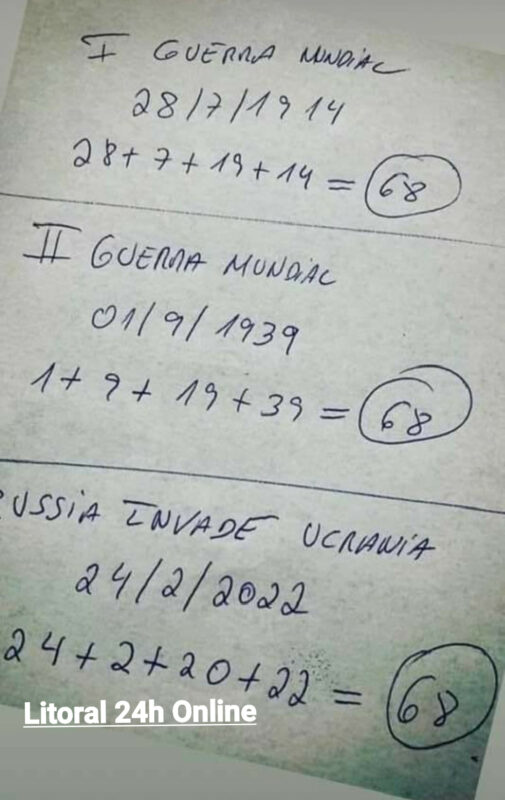 I GUERRA MUNDIAL
28/7/1914
28+7+19+14=68
II GUERRA MUNDIAL
01/9/1939
1+9+19+39=68
RUSSIA INVADE UCRANIA
24/2/2022
24+2+20+22=68
Litoral 24h Online